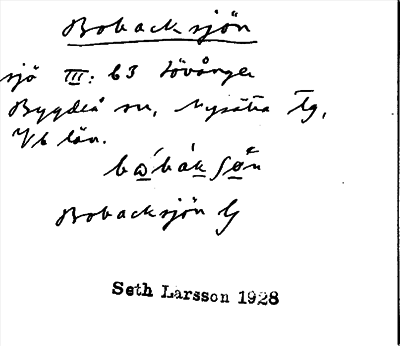 Bobacksjön
sjö III: b3 Lövånger
Bygdeå sn, Nysätra tg,
Vb län.
Bobacksjön
Seth Larsson 1928